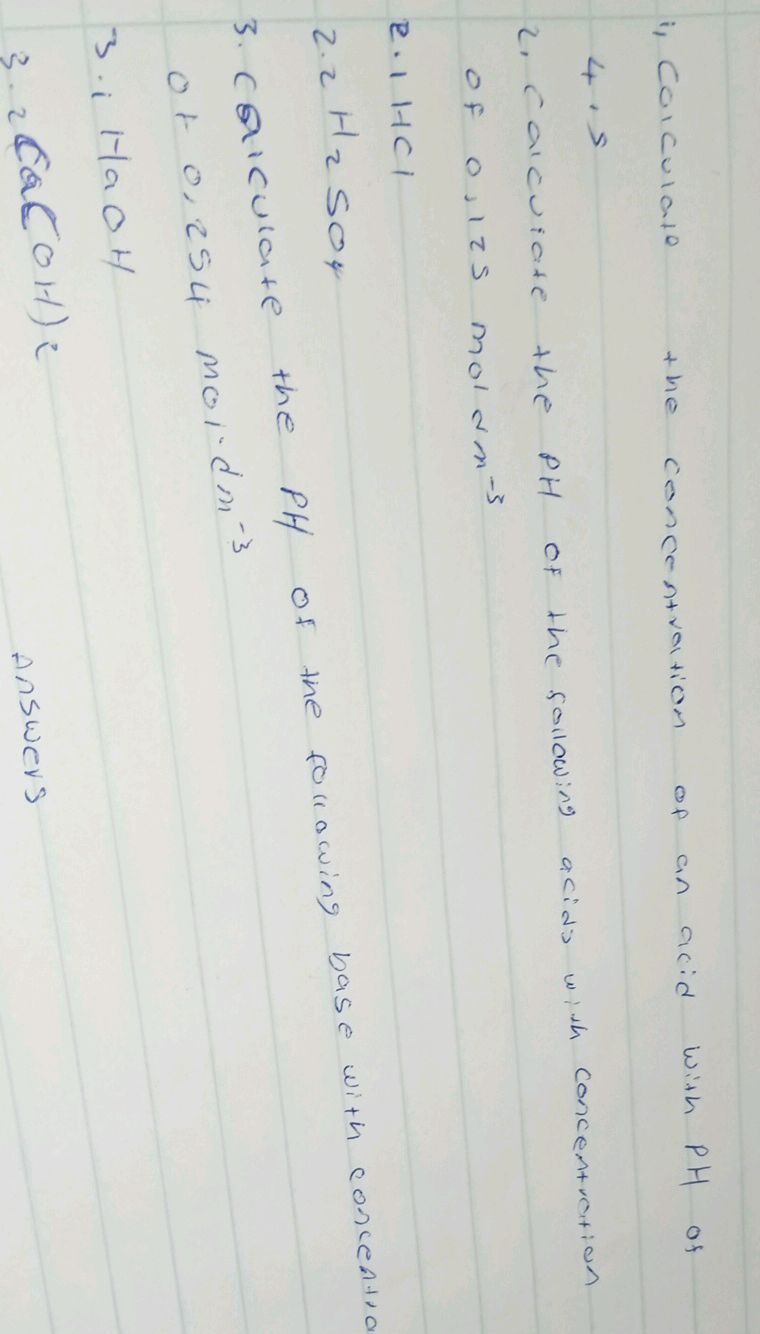 1, Calculate the concentration of an acid with PH of
4.5
2, calculate the PH of the following acids with concentration
of 0,125 mol dm⁻³
2.1 HCl
2.2 H2SO4
3. calculate the PH of the following base with concentra
of 0,254 mol.dm⁻³
3.1 HaOH
3.2 Ca(OH)2
Answers